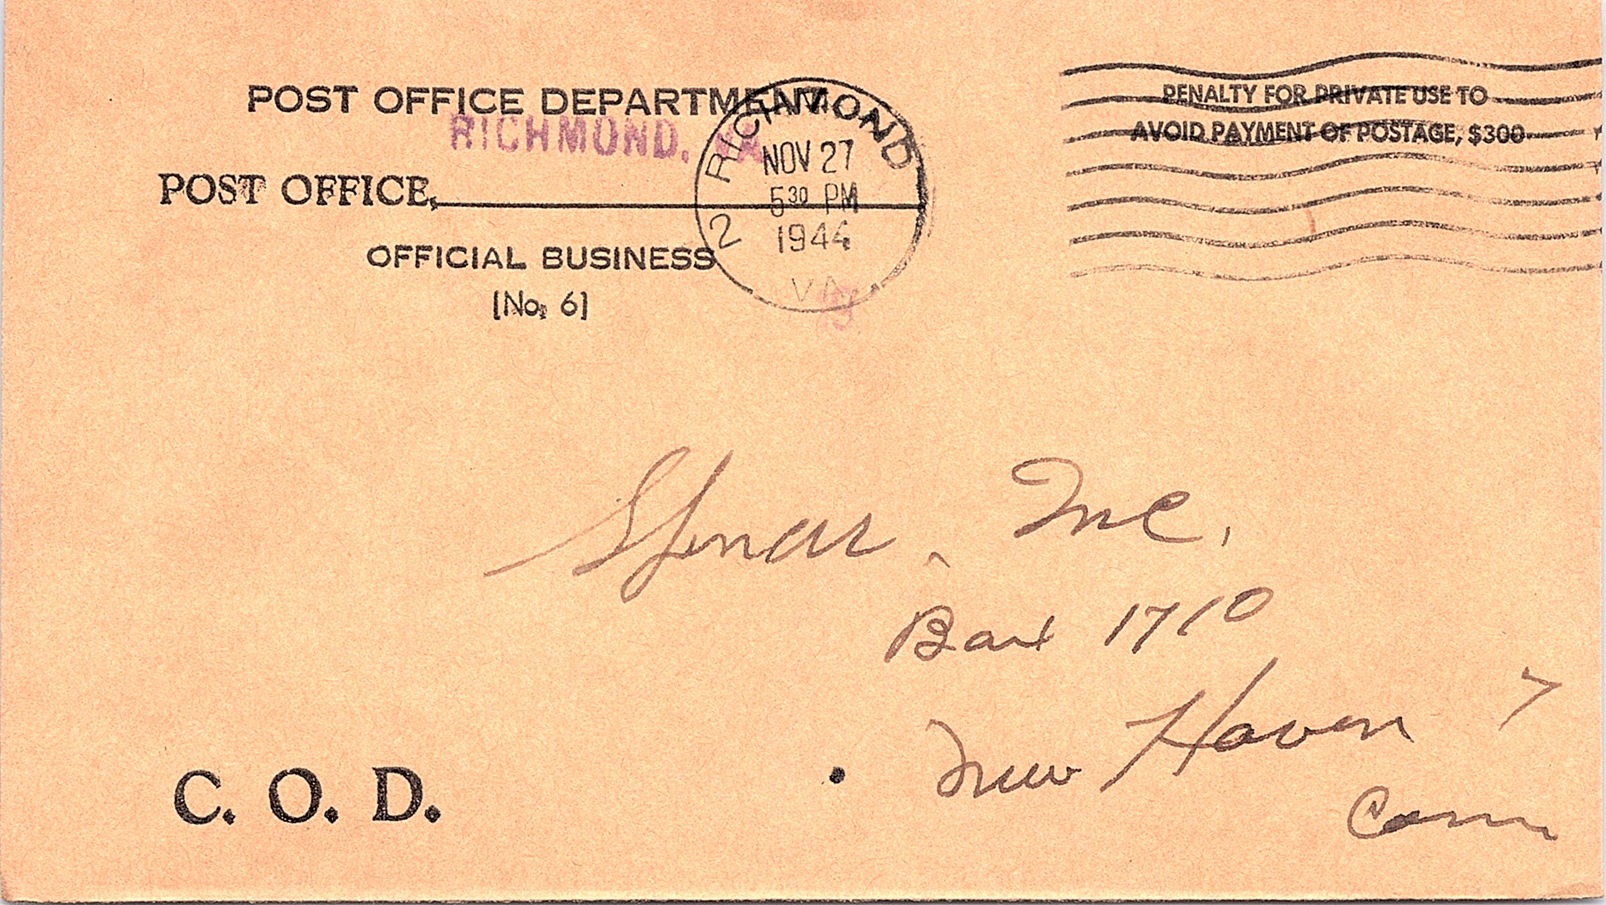 POST OFFICE DEPARTMENT
RICHMOND, VA.
POST OFFICE,
OFFICIAL BUSINESS
[No. 6]
RICHMOND 2
NOV 27
5 30 PM
1944
VA.
PENALTY FOR PRIVATE USE TO
AVOID PAYMENT OF POSTAGE, $300
Inc,
Box 1710
New Haven 7
Conn
C. O. D.